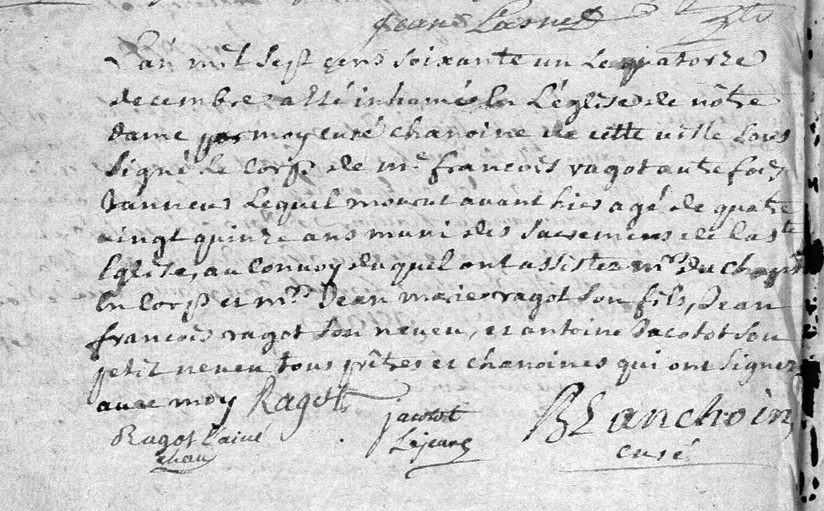 Jean Lasnet
L'an mil sept cens soixante un le quatorze
decembre a eté inhumé en L'eglise de nôtre
dame par moy curé chanoine de cette ville sous
signé le corps de mr francois ragot autre fois
tanneur Lequel mourut avant hier agé de quatre
vingt quinze ans muni des sacremens de la ste
Eglise, au convoy duquel ont assistez mrs du chapitre
en corps et mrs Jean marie ragot son fils, Jean
francois ragot son neveu, et antoine Jacotot son
petit neveu tous prêtres et chanoines qui ont signez
avec moy Ragot
jacotot Blanchoin
Ragot l'ainé Lejeune curé
chan